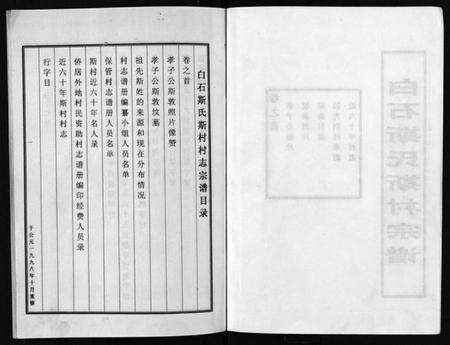 白石斯氏斯村村志宗谱目录
卷之首
孝子公斯敦照片像赞
孝子公斯敦坟墓
祖先斯姓的来源和现在分布情况
村志谱册编纂小组人员名单
保管村志谱册人员名单
斯村近六十年名人录
侨居外地村民资助村志谱册编印经费人员录
近六十年斯村村志
行字目
于公元一九九八年十月重修
白石斯氏斯村宗谱
卷之首